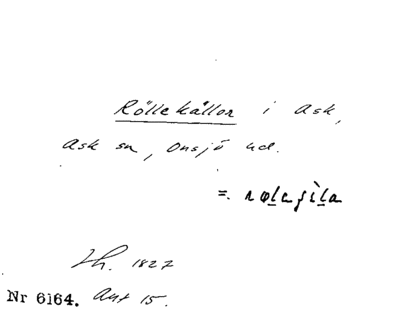 Rölle källor i Ask,
Ask sn, Onsjö hd.
=. røleʃìla
Lh. 1827
Nr 6164. Ant 15.